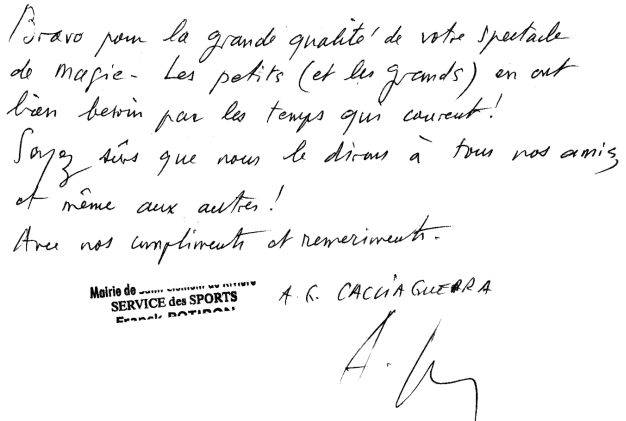 Bravo pour la grande qualité de votre spectacle
de magie - Les petits (et les grands) en ont
bien besoin par les temps qui courent !
Soyez sûrs que nous le dirons à tous nos amis,
et même aux autres !
Avec nos compliments et remerciements.
Mairie de
SERVICE des SPORTS
Franck POTIRON
A. G. CACCIAGUERRA